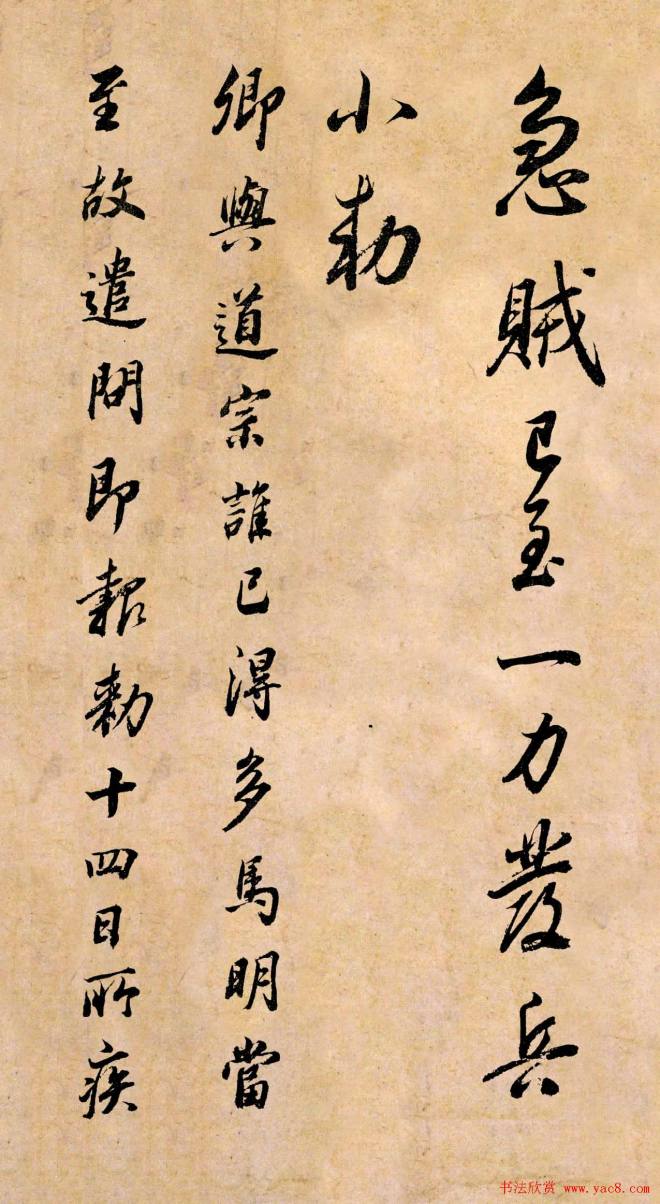 急賊已至一力發兵
小勅
卿與道宗誰已得多馬明當
至故遣問即報勅十四日所疾
书法欣赏 www.yac8.com